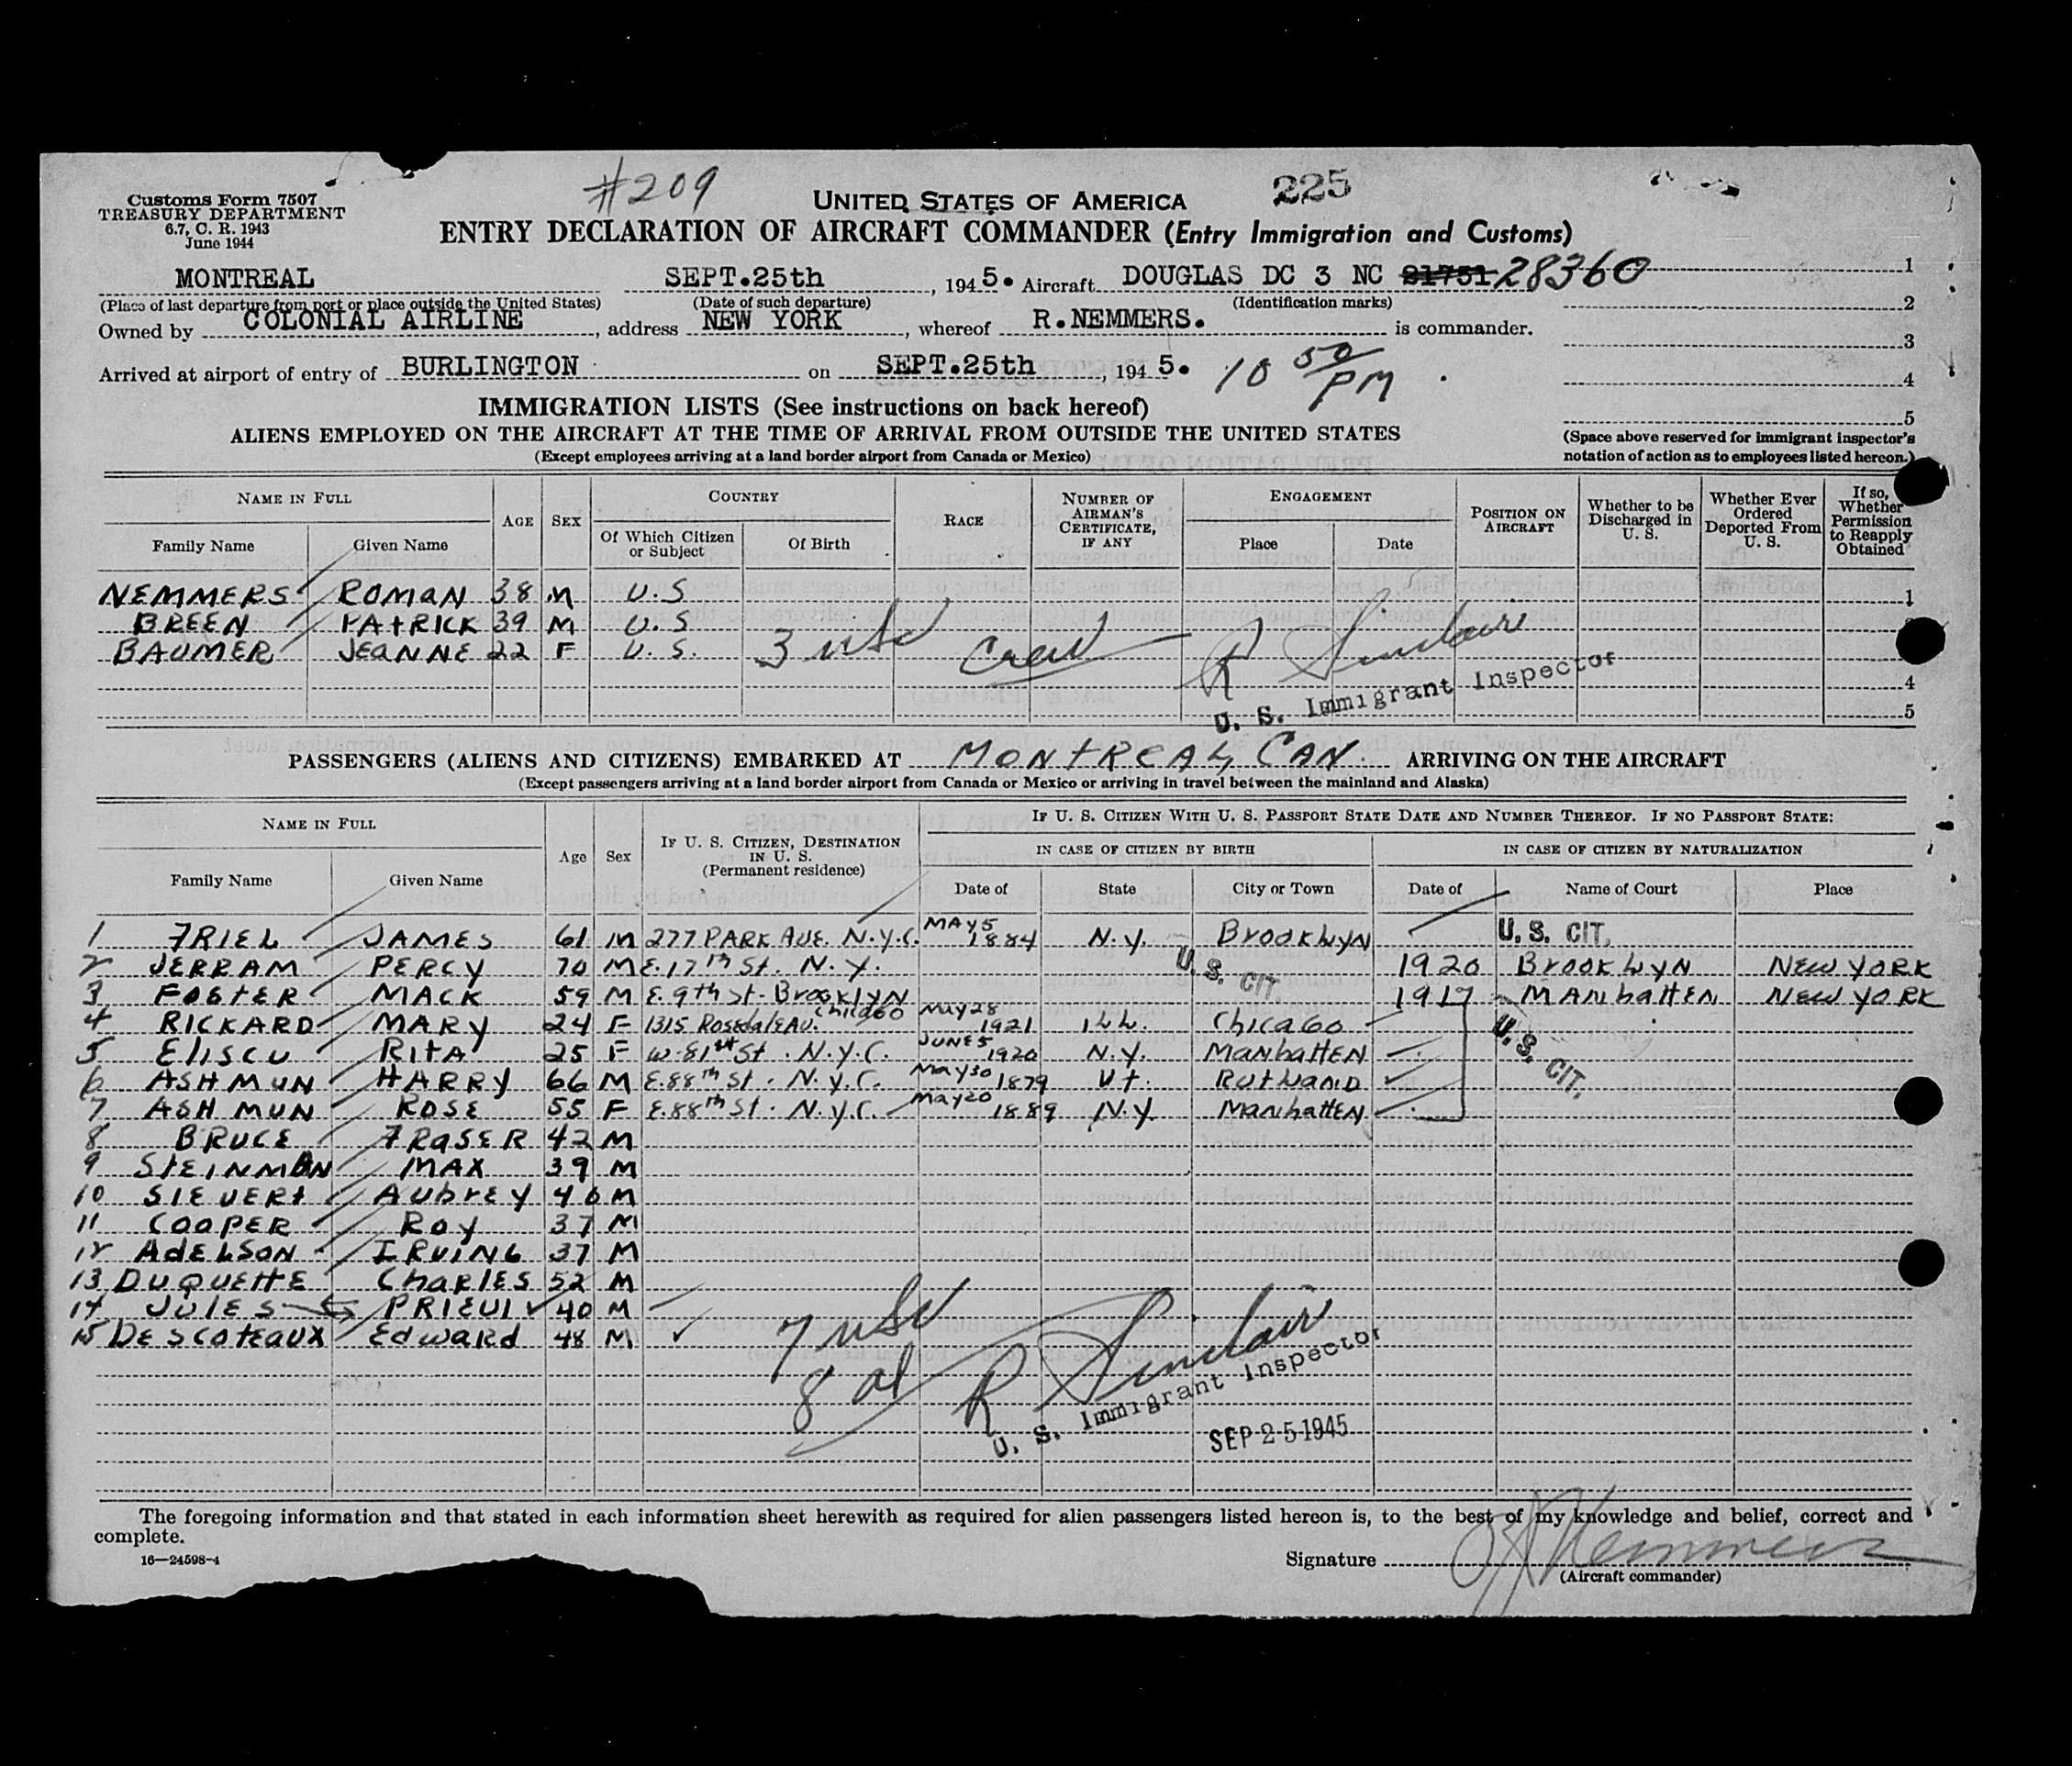 #209
225
Customs Form 7507
TREASURY DEPARTMENT
6.7, C. R. 1943
June 1944
UNITED STATES OF AMERICA
ENTRY DECLARATION OF AIRCRAFT COMMANDER (Entry Immigration and Customs)
MONTREAL SEPT.25th, 1945. Aircraft DOUGLAS DC 3 NC 21751 28360
(Place of last departure from port or place outside the United States) (Date of such departure) (Identification marks)
Owned by COLONIAL AIRLINE, address NEW YORK, whereof R.NEMMERS. is commander.
Arrived at airport of entry of BURLINGTON on SEPT.25th, 1945. 10 50/PM
1
2
3
4
5
(Space above reserved for immigrant inspector's
notation of action as to employees listed hereon.)
IMMIGRATION LISTS (See instructions on back hereof)
ALIENS EMPLOYED ON THE AIRCRAFT AT THE TIME OF ARRIVAL FROM OUTSIDE THE UNITED STATES
(Except employees arriving at a land border airport from Canada or Mexico)
NAME IN FULL
Family Name Given Name
AGE SEX
COUNTRY
Of Which Citizen or Subject Of Birth
RACE
NUMBER OF AIRMAN'S CERTIFICATE, IF ANY
ENGAGEMENT
Place Date
POSITION ON AIRCRAFT
Whether to be Discharged in U. S.
Whether Ever Ordered Deported From U. S.
If so, Whether Permission to Reapply Obtained
NEMMERS ROMAN 38 M U.S 1
BREEN PATRICK 39 M U.S
BAUMER JEANNE 22 F U.S.
3 USC Crew R Sinclair
4
U. S. Immigrant Inspector 5
PASSENGERS (ALIENS AND CITIZENS) EMBARKED AT MONTREAL, CAN. ARRIVING ON THE AIRCRAFT
(Except passengers arriving at a land border airport from Canada or Mexico or arriving in travel between the mainland and Alaska)
NAME IN FULL
Family Name Given Name
Age Sex
IF U. S. CITIZEN, DESTINATION IN U. S. (Permanent residence)
IF U. S. CITIZEN WITH U. S. PASSPORT STATE DATE AND NUMBER THEREOF. IF NO PASSPORT STATE:
IN CASE OF CITIZEN BY BIRTH IN CASE OF CITIZEN BY NATURALIZATION
Date of State City or Town Date of Name of Court Place
1 FRIEL JAMES 61 M 277 PARK AVE. N.Y.C. MAY 5 1884 N.Y. BROOKLYN U.S. CIT.
2 JERRAM PERCY 70 M E. 17th St. N.Y. U.S. CIT. 1920 BROOKLYN NEW YORK
3 FOSTER MACK 59 M E. 9th St. BROOKLYN 1917 MANHATTEN NEW YORK
4 RICKARD MARY 24 F 1315 ROSEDALE AV. CHICAGO MAY 28 1921 ILL. CHICAGO
5 ELISCU RITA 25 F W. 81st St. N.Y.C. JUNE 5 1920 N.Y. MANHATTEN U.S. CIT.
6 ASHMUN HARRY 66 M E. 88th St. N.Y.C. MAY 30 1879 Vt. RUTLAND
7 ASHMUN ROSE 55 F E. 88th St. N.Y.C. MAY 20 1889 N.Y. MANHATTEN
8 BRUCE FRASER 42 M
9 STEINMAN MAX 39 M
10 SIEVERT AUBREY 40 M
11 COOPER ROY 37 M
12 ADELSON IRVING 37 M
13 DUQUETTE CHARLES 52 M
14 JULES PRIEUI 40 M
15 DESCOTEAUX EDWARD 48 M
7 USC
8 al R Sinclair
U. S. Immigrant Inspector
SEP 25 1945
The foregoing information and that stated in each information sheet herewith as required for alien passengers listed hereon is, to the best of my knowledge and belief, correct and
complete.
16—24598-4
Signature Nemmers
(Aircraft commander)